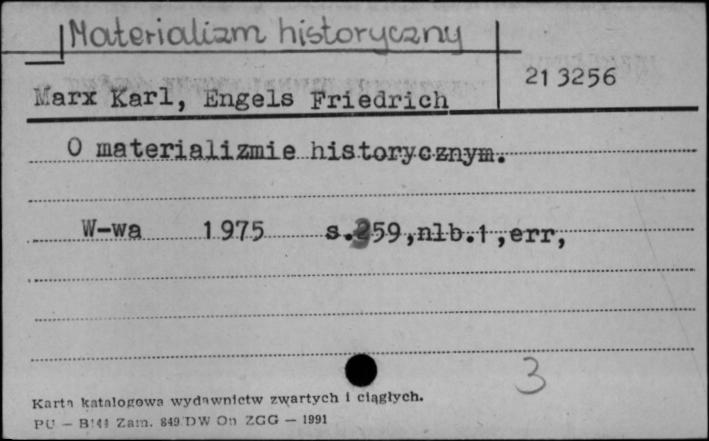 Materializm historyczny
21 3256
Marx Karl, Engels Friedrich
O materializmie historycznym.
W-wa 1975 s.259,nlb.1,err,
3
Karta katalogowa wydawnictw zwartych i ciągłych.
PU — B/44 Zam. 849/DW On ZGG — 1991